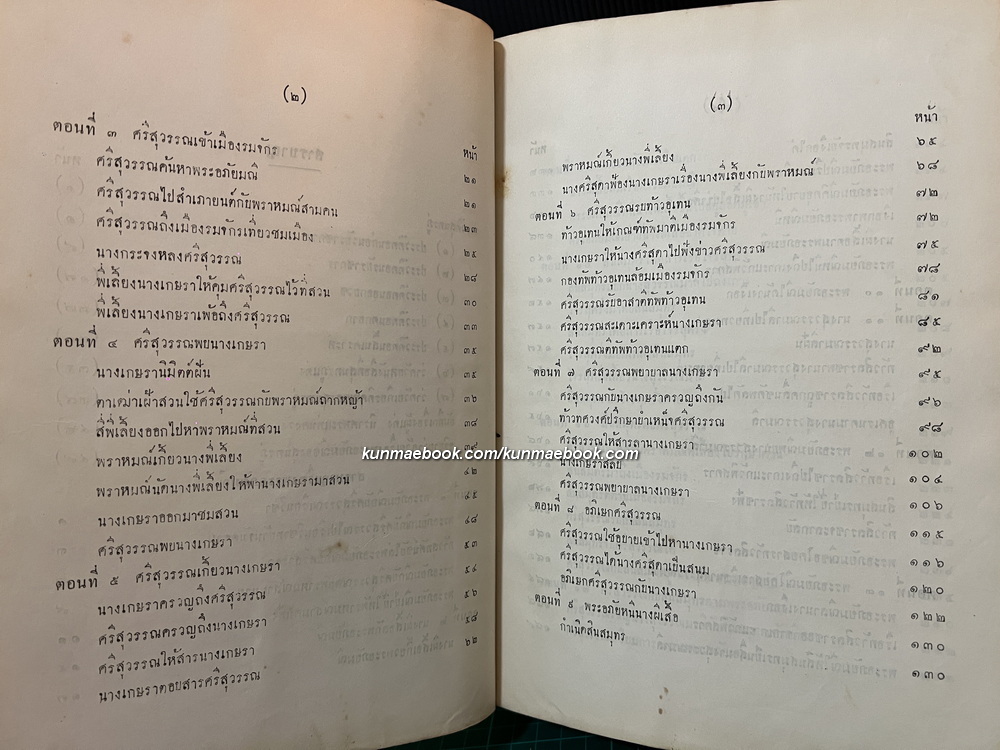 (๒)
หน้า
ตอนที่ ๓ ศรีสุวรรณเข้าเมืองรมจักร ๒๑
ศรีสุวรรณค้นหาพระอภัยมณี ๒๑
ศรีสุวรรณไปสำเภายนต์กับพราหมณ์สามคน ๒๓
ศรีสุวรรณถึงเมืองรมจักรเที่ยวชมเมือง ๒๕
นางกระจงหลงศรีสุวรรณ ๒๘
พี่เลี้ยงนางเกษราให้คุมศรีสุวรรณไว้ที่สวน ๓๐
พี่เลี้ยงนางเกษราเพ้อถึงศรีสุวรรณ ๓๓
ตอนที่ ๔ ศรีสุวรรณพบนางเกษรา ๓๕
นางเกษรานิมิตต์ฝัน ๓๕
ตาเฒ่าเฝ้าสวนใช้ศรีสุวรรณกับพราหมณ์ถากหญ้า ๓๖
สี่พี่เลี้ยงออกไปหาพราหมณ์ที่สวน ๓๘
พราหมณ์เกี้ยวนางพี่เลี้ยง ๓๙
พราหมณ์นัดนางพี่เลี้ยงให้พานางเกษรามาสวน ๔๒
นางเกษราออกมาชมสวน ๔๕
ศรีสุวรรณพบนางเกษรา ๔๘
ตอนที่ ๕ ศรีสุวรรณเกี้ยวนางเกษรา ๕๓
นางเกษราครวญถึงศรีสุวรรณ ๕๔
ศรีสุวรรณครวญถึงนางเกษรา ๕๖
ศรีสุวรรณให้สารนางเกษรา ๕๘
นางเกษราตอบสารศรีสุวรรณ ๖๒
(๓)
หน้า
พราหมณ์เกี้ยวนางพี่เลี้ยง ๖๕
นางศรีสุดาฟ้องนางเกษราเรื่องนางพี่เลี้ยงกับพราหมณ์ ๖๘
ตอนที่ ๖ ศรีสุวรรณรบท้าวอุเทน ๗๒
ท้าวอุเทนให้เกณฑ์ทัพมาตีเมืองรมจักร ๗๒
นางเกษราให้นางศรีสุดาไปฟังข่าวศรีสุวรรณ ๗๕
กองทัพท้าวอุเทนล้อมเมืองรมจักร ๗๘
ศรีสุวรรณรับอาสาตีทัพท้าวอุเทน ๘๑
ศรีสุวรรณสะเดาะเคราะห์นางเกษรา ๘๕
ศรีสุวรรณตีทัพท้าวอุเทนแตก ๙๒
ตอนที่ ๗ ศรีสุวรรณพยาบาลนางเกษรา ๙๕
ศรีสุวรรณกับนางเกษราครวญถึงกัน ๙๖
ท้าวทศวงศ์ปรึกษาบำเหน็จศรีสุวรรณ ๙๘
ศรีสุวรรณให้สารลานางเกษรา ๑๐๒
นางเกษราสลบ ๑๐๔
ศรีสุวรรณพยาบาลนางเกษรา ๑๐๖
ตอนที่ ๘ อภิเษกศรีสุวรรณ ๑๑๕
ศรีสุวรรณใช้อุบายเข้าไปหานางเกษรา ๑๑๖
ศรีสุวรรณได้นางศรีสุดาเป็นสนม ๑๒๐
อภิเษกศรีสุวรรณกับนางเกษรา ๑๒๒
ตอนที่ ๙ พระอภัยหนีนางผีเสื้อ ๑๓๐
กำเนิดสินสมุทร ๑๓๐
kunmaebook.com/kunmaebook.com